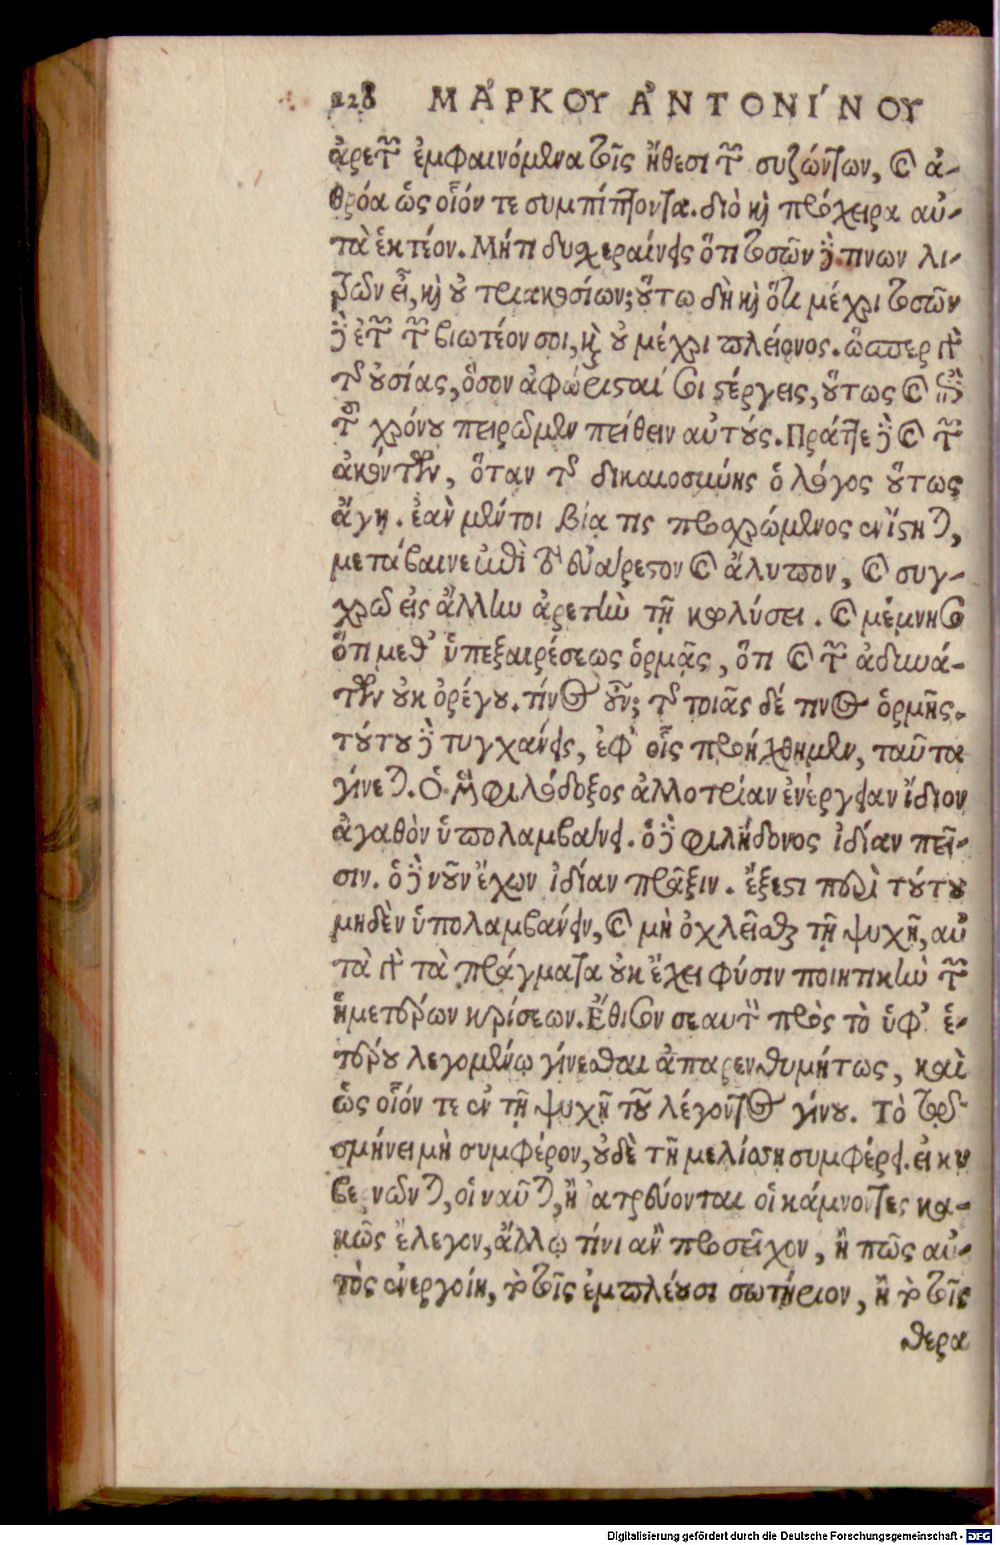 228 ΜΑ῎ΡΚΟΥ Ἀ῎ΝΤΟΝΙ΄ΝΟΥ
ἀρετῶν ἐμφαινόμενα τοῖς ἤθεσι τῶν συζώντων, καὶ ἀ-
θρόα ὡς οἷόν τε συμπίπτοντα. διὸ καὶ πρόχειρα αὐ-
τὰ ἑκτέον. Μήτι δυσχεραίνεις ὅτι τοσῶνδέ τινων λι-
τρῶν εἶ, καὶ οὐ τριακοσίων; οὕτω δὴ καὶ ὅτι μέχρι τοσῶν
δὲ ἐτῶν βιωτέον σοι, καὶ οὐ μέχρι πλείονος. ὥσπερ γὰρ
τῆς οὐσίας, ὅσον ἀφώρισταί σοι στέργεις, οὕτως καὶ ἐπὶ
τοῦ χρόνου πειρώμεν πείθειν αὐτούς. Πράττε δὲ καὶ τῶν
ἀκόντων, ὅταν τῆς δικαιοσύνης ὁ λόγος οὕτως
ἄγῃ. ἐὰν μέντοι βίᾳ τις προχρώμενος ἐνίστηται,
μετάβαινε ἐπὶ τὸ εὐάρεστον καὶ ἄλυπον, καὶ συγ-
χρῶ εἰς ἄλλην ἀρετὴν τῇ κωλύσει. καὶ μέμνησο
ὅτι μεθ’ ὑπεξαιρέσεως ὁρμᾷς, ὅτι καὶ τῶν ἀδυνά-
των οὐκ ὀρέγου. τίνος οὖν; τῆς τοιᾶς δέ τινος ὁρμῆς.
τούτου δὲ τυγχάνεις, ἐφ’ οἷς προήχθημεν, ταῦτα
γίνεται. Ὁ μὲν φιλόδοξος ἀλλοτρίαν ἐνέργειαν ἴδιον
ἀγαθὸν ὑπολαμβάνει. ὁ δὲ φιλήδονος ἰδίαν πεῖ-
σιν. ὁ δὲ νοῦν ἔχων ἰδίαν πρᾶξιν. ἔξεστι περὶ τούτου
μηδὲν ὑπολαμβάνειν, καὶ μὴ ὀχλεῖσθαι τῇ ψυχῇ, αὐ
τὰ γὰρ τὰ πράγματα οὐκ ἔχει φύσιν ποιητικὴν τῶν
ἡμετέρων κρίσεων. Ἔθισον σεαυτὸν πρὸς τὸ ὑφ’ ἑ-
τέρου λεγομένῳ γίνεσθαι ἀπαρενθυμήτως, καὶ
ὡς οἷόν τε ἐν τῇ ψυχῇ τοῦ λέγοντος γίνου. Τὸ τῷ
σμήνει μὴ συμφέρον, οὐδὲ τῇ μελίσσῃ συμφέρει. εἰ κυ
βερνῶντα, οἱ ναῦται, ἢ ἰατρεύοντα οἱ κάμνοντες κα-
κῶς ἔλεγον, ἄλλῳ τίνι ἂν προσεῖχον, ἢ πῶς αὐ-
τὸς ἐνεργοίη, τὸ τοῖς ἐμπλέουσι σωτήριον, ἢ τὸ τοῖς
θερα
Digitalisierung gefördert durch die Deutsche Forschungsgemeinschaft - DFG